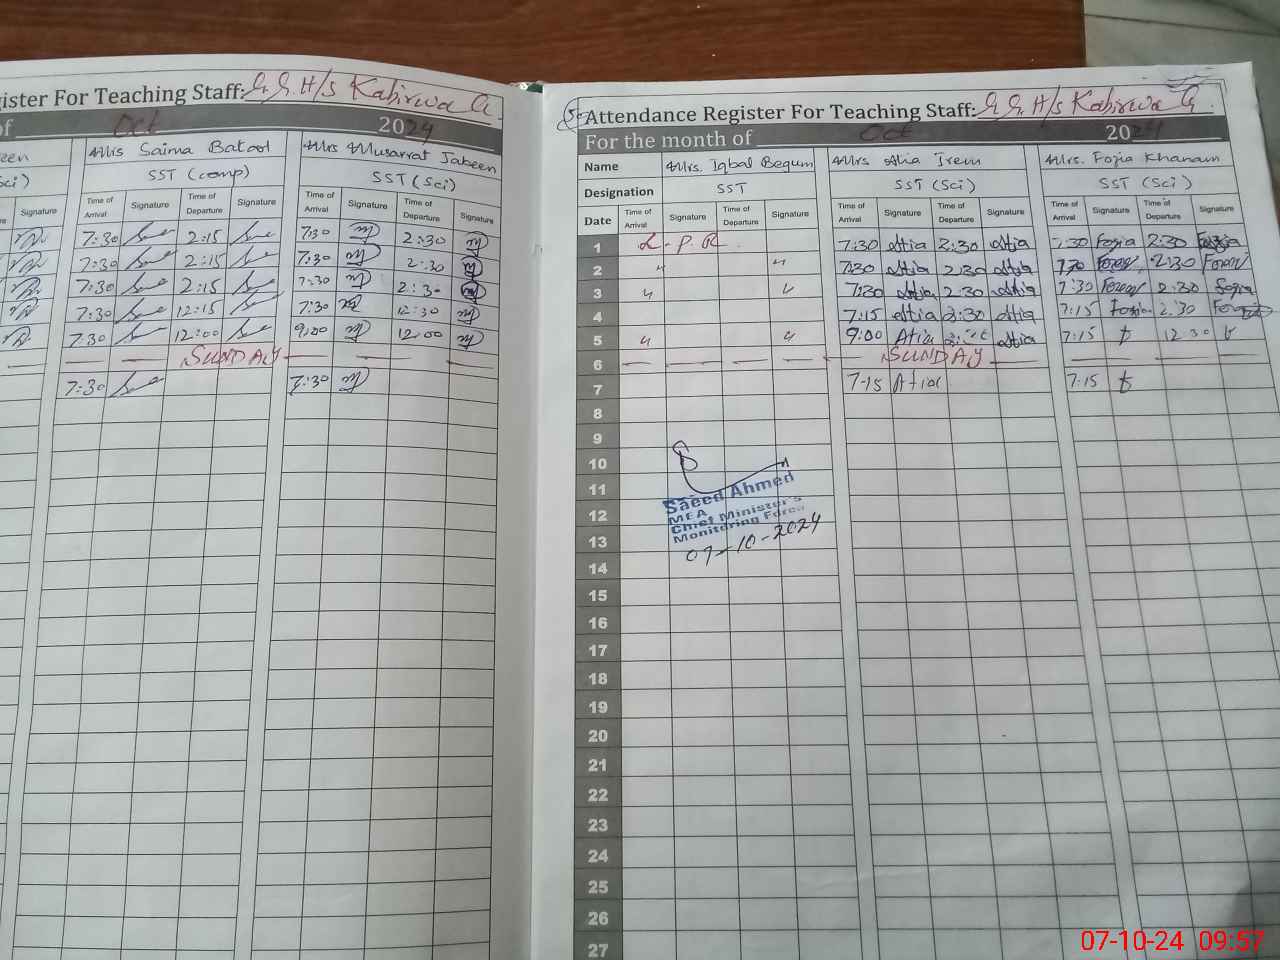 ister For Teaching Staff: G G. H/s Kabirwa a
of Oct 2024
een Mrs Saima Batool Mrs Musarrat Jabeen
Sci) SST (comp) SST (Sci)
Signature Time of Arrival Signature Time of Departure Signature Time of Arrival Signature Time of Departure Signature
7:30 2:15 7:30 2:30
7:30 2:15 7:30 2:30
7:30 2:15 7:30 2:30
7:30 12:15 7:30 12:30
7:30 12:00 9:00 12:00
SUNDAY
7:30 7:30
Attendance Register For Teaching Staff: G G. H/s Kabirwa
For the month of Oct 2024
Name Mrs. Iqbal Begum Mrs Atia Irem Mrs. Fojia Khanam
Designation SST SST (Sci) SST (Sci)
Date Time of Arrival Signature Time of Departure Signature Time of Arrival Signature Time of Departure Signature Time of Arrival Signature Time of Departure Signature
1 L-P.R 7:30 Atia 2:30 Atia 7:30 Fojia 2:30 Fojia
2 " " 7:30 Atia 2:30 Atia 7:30 2:30
3 " " 7:30 Atia 2:30 Atia 7:30 2:30 Fojia
4 7:15 Atia 2:30 Atia 7:15 Fojia 2:30
5 " " 9:00 Atia Atia 7:15 12:30
6 SUNDAY
7 7-15 Atia 7:15
8
9
10
11
12
13
14
15
16
17
18
19
20
21
22
23
24
25
26
27
Saeed Ahmed
MEA
Chief Minister's
Monitoring Force
07-10-2024
07-10-24 09:57